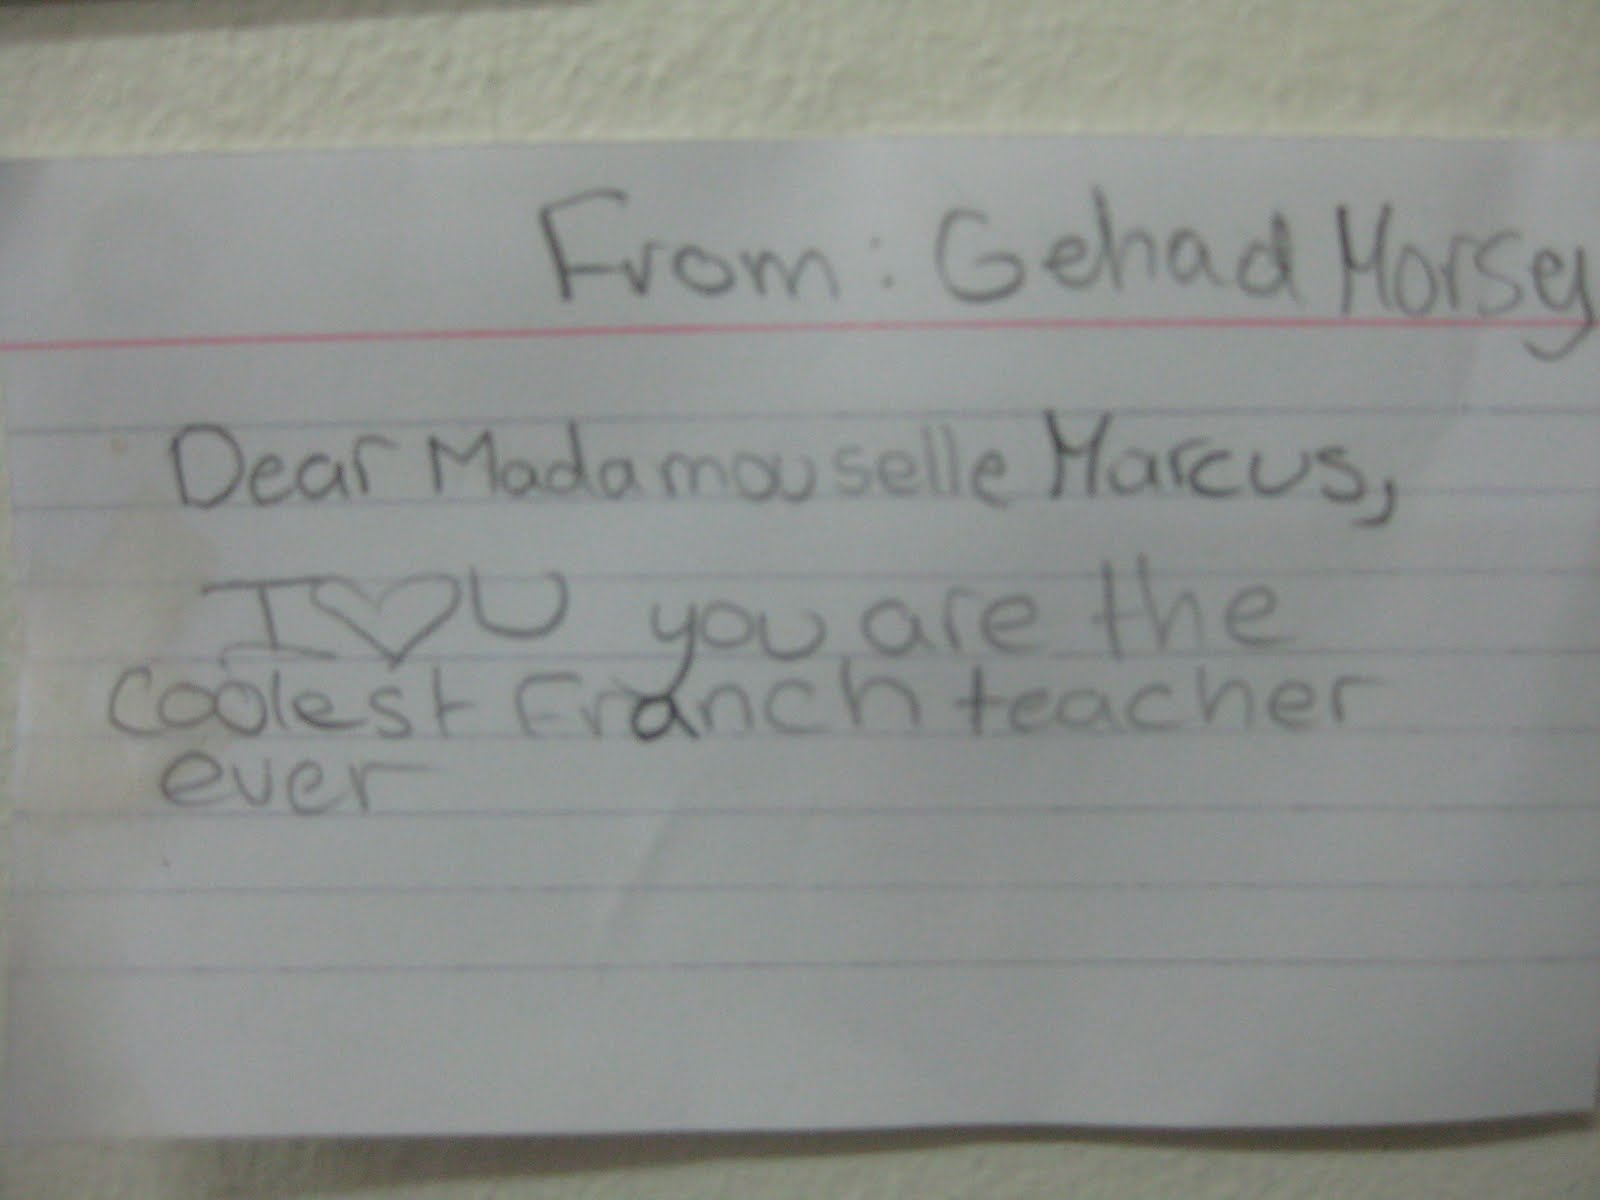 From: Gehad Morsey
Dear Madamouselle Marcus,
I♡U you are the
coolest Franch teacher
ever